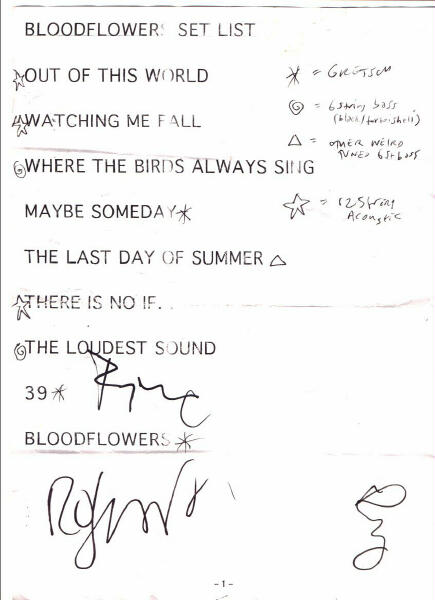 BLOODFLOWERS SET LIST
OUT OF THIS WORLD
WATCHING ME FALL
WHERE THE BIRDS ALWAYS SING
MAYBE SOMEDAY
THE LAST DAY OF SUMMER
THERE IS NO IF..
THE LOUDEST SOUND
39
BLOODFLOWERS
= GRETSCH
= 6 string bass
(black/tortoishell)
= OTHER WEIRD
TUNED 6 ST BASS
= 12 String
Acoustic
-1-